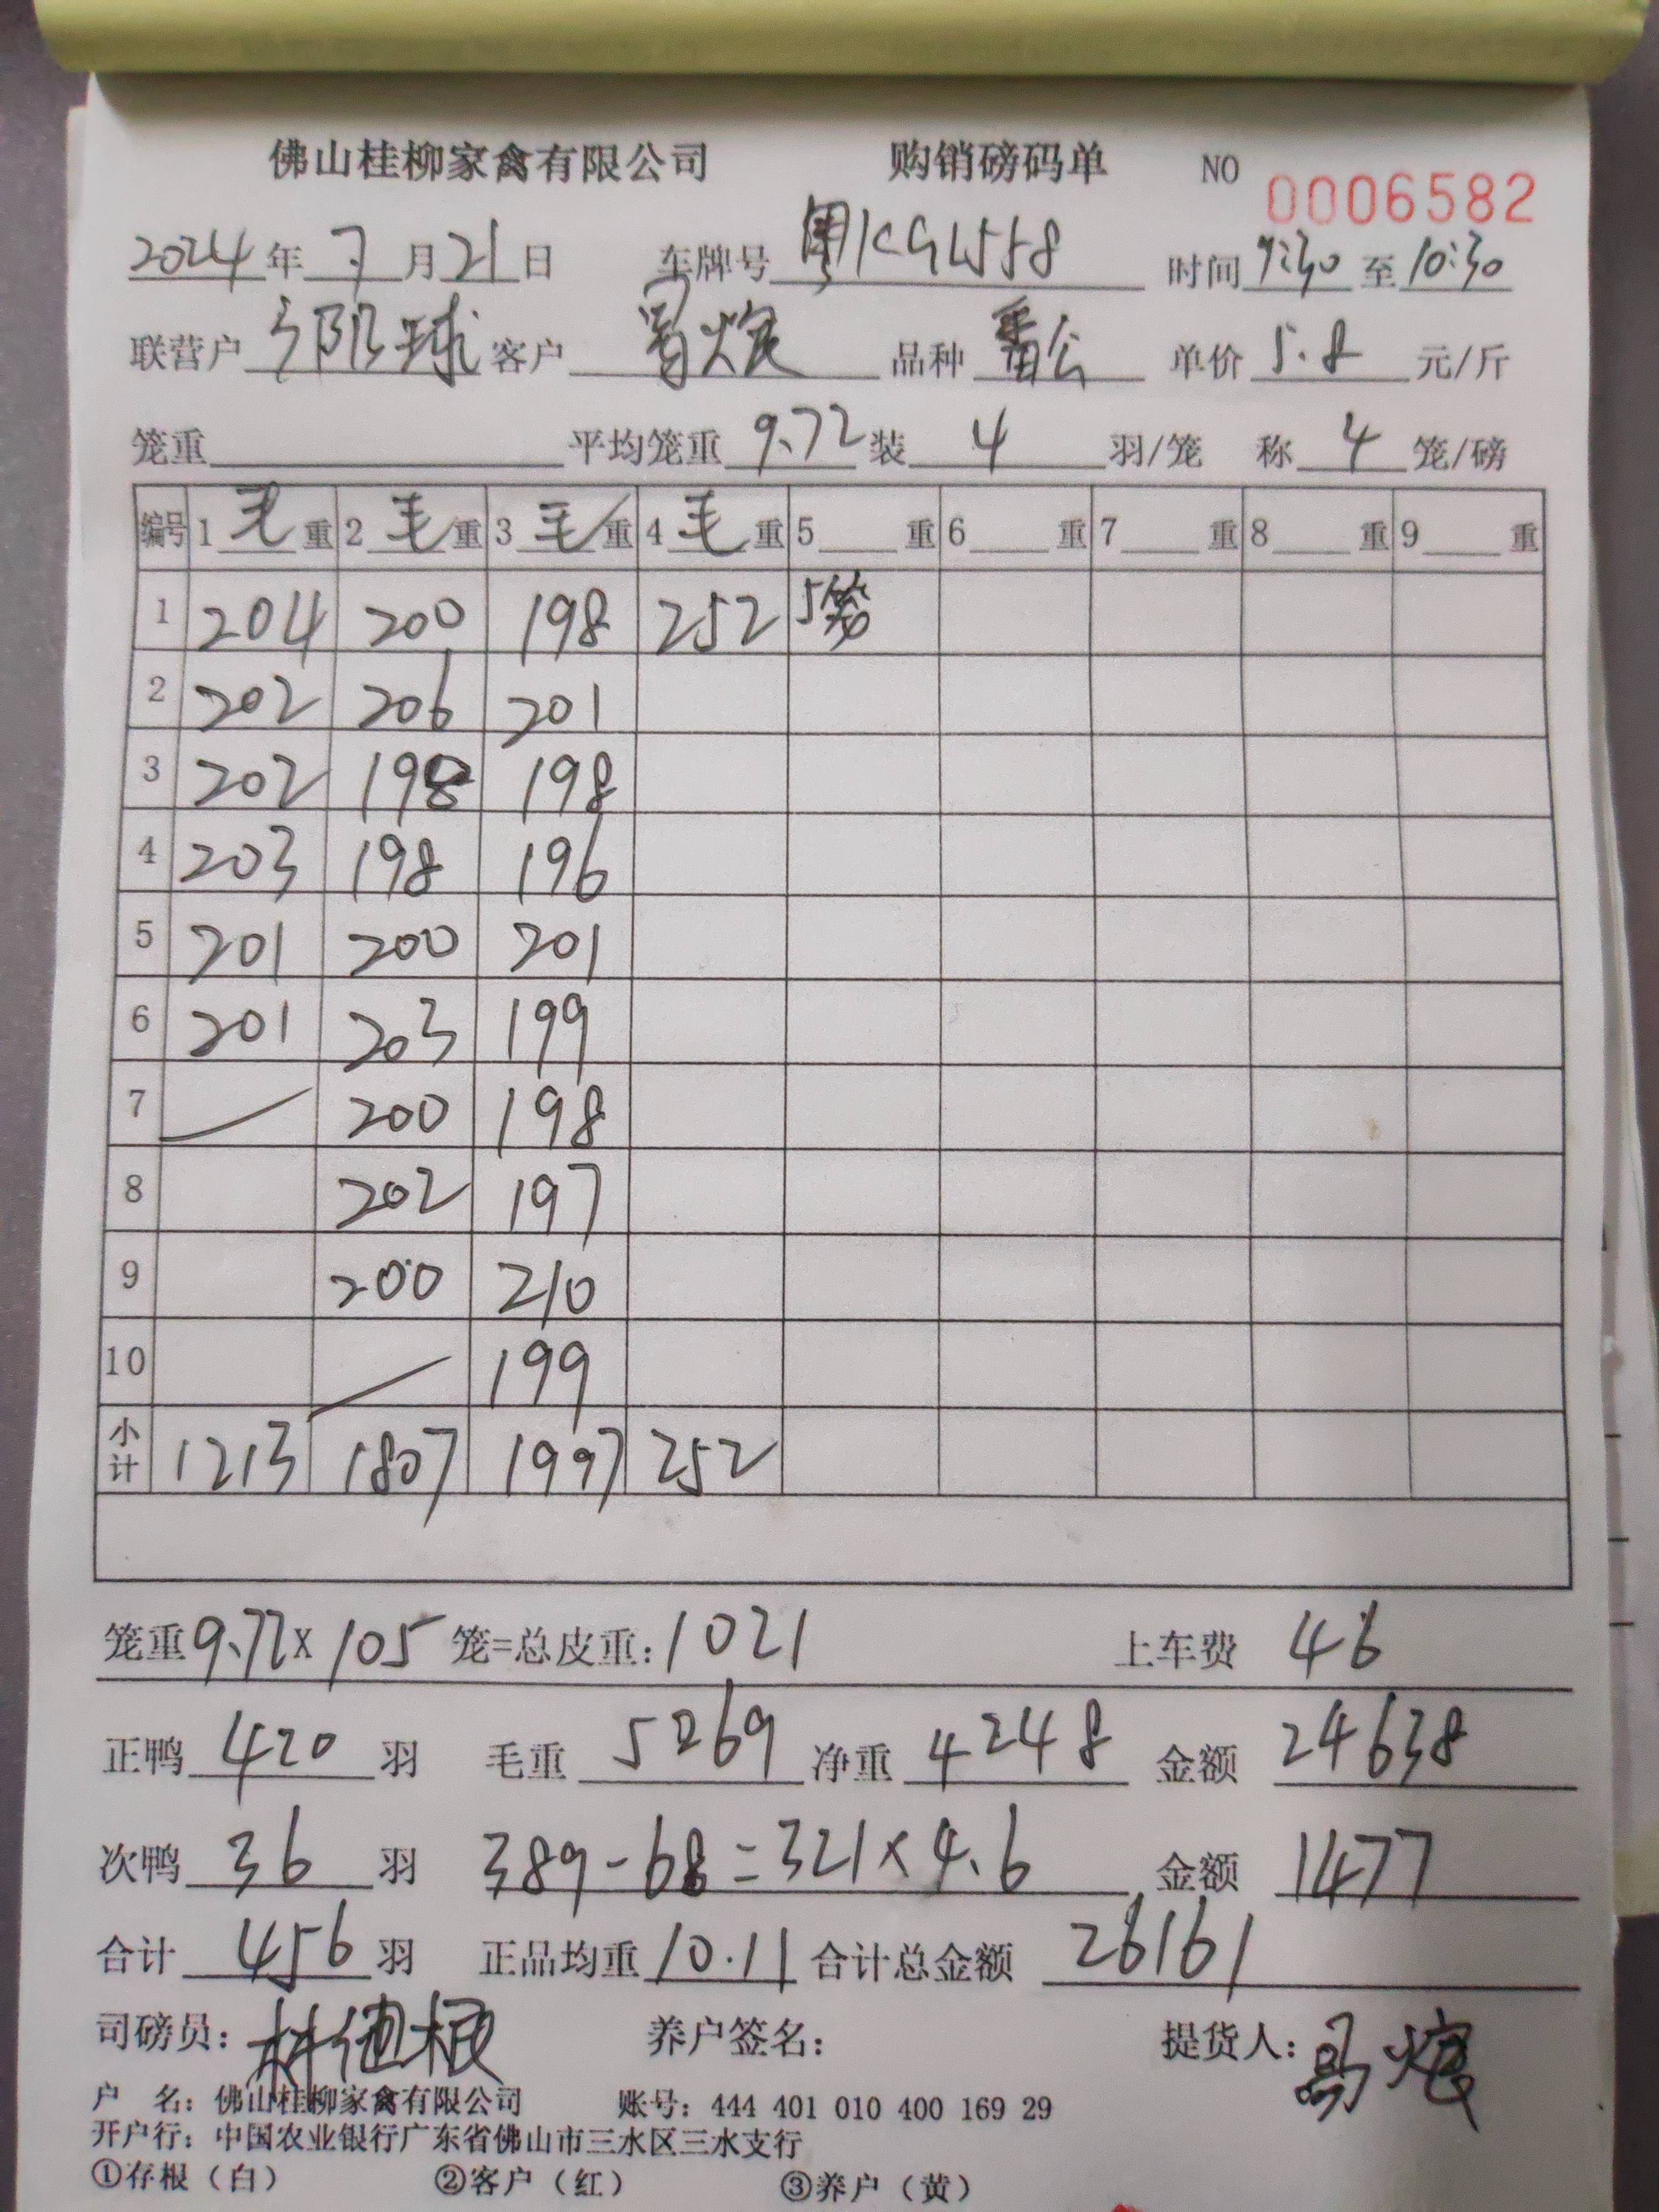 佛山桂柳家禽有限公司 购销磅码单 NO 0006582
2024年7月21日 车牌号 粤KGW558 时间9:30至10:30
联营户 球 客户 品种 番公 单价 5.8 元/斤
笼重 平均笼重 9.72 装 4 羽/笼 称 4 笼/磅
编号 1毛重 2毛重 3毛重 4毛重 5 重 6 重 7 重 8 重 9 重
1 204 200 198 252 5笼
2 202 206 201
3 202 198 198
4 203 198 196
5 201 200 201
6 201 203 199
7 200 198
8 202 197
9 200 210
10 199
小计 1213 1807 1997 252
笼重9.72×105笼=总皮重:1021 上车费 46
正鸭 420 羽 毛重 5269 净重 4248 金额 24638
次鸭 36 羽 389-68=321×4.6 金额 1477
合计 456 羽 正品均重 10.11 合计总金额 26161
司磅员: 林 根 养户签名: 提货人:
户 名: 佛山桂柳家禽有限公司 账号: 444 401 010 400 169 29
开户行: 中国农业银行广东省佛山市三水区三水支行
①存根（白） ②客户（红） ③养户（黄）